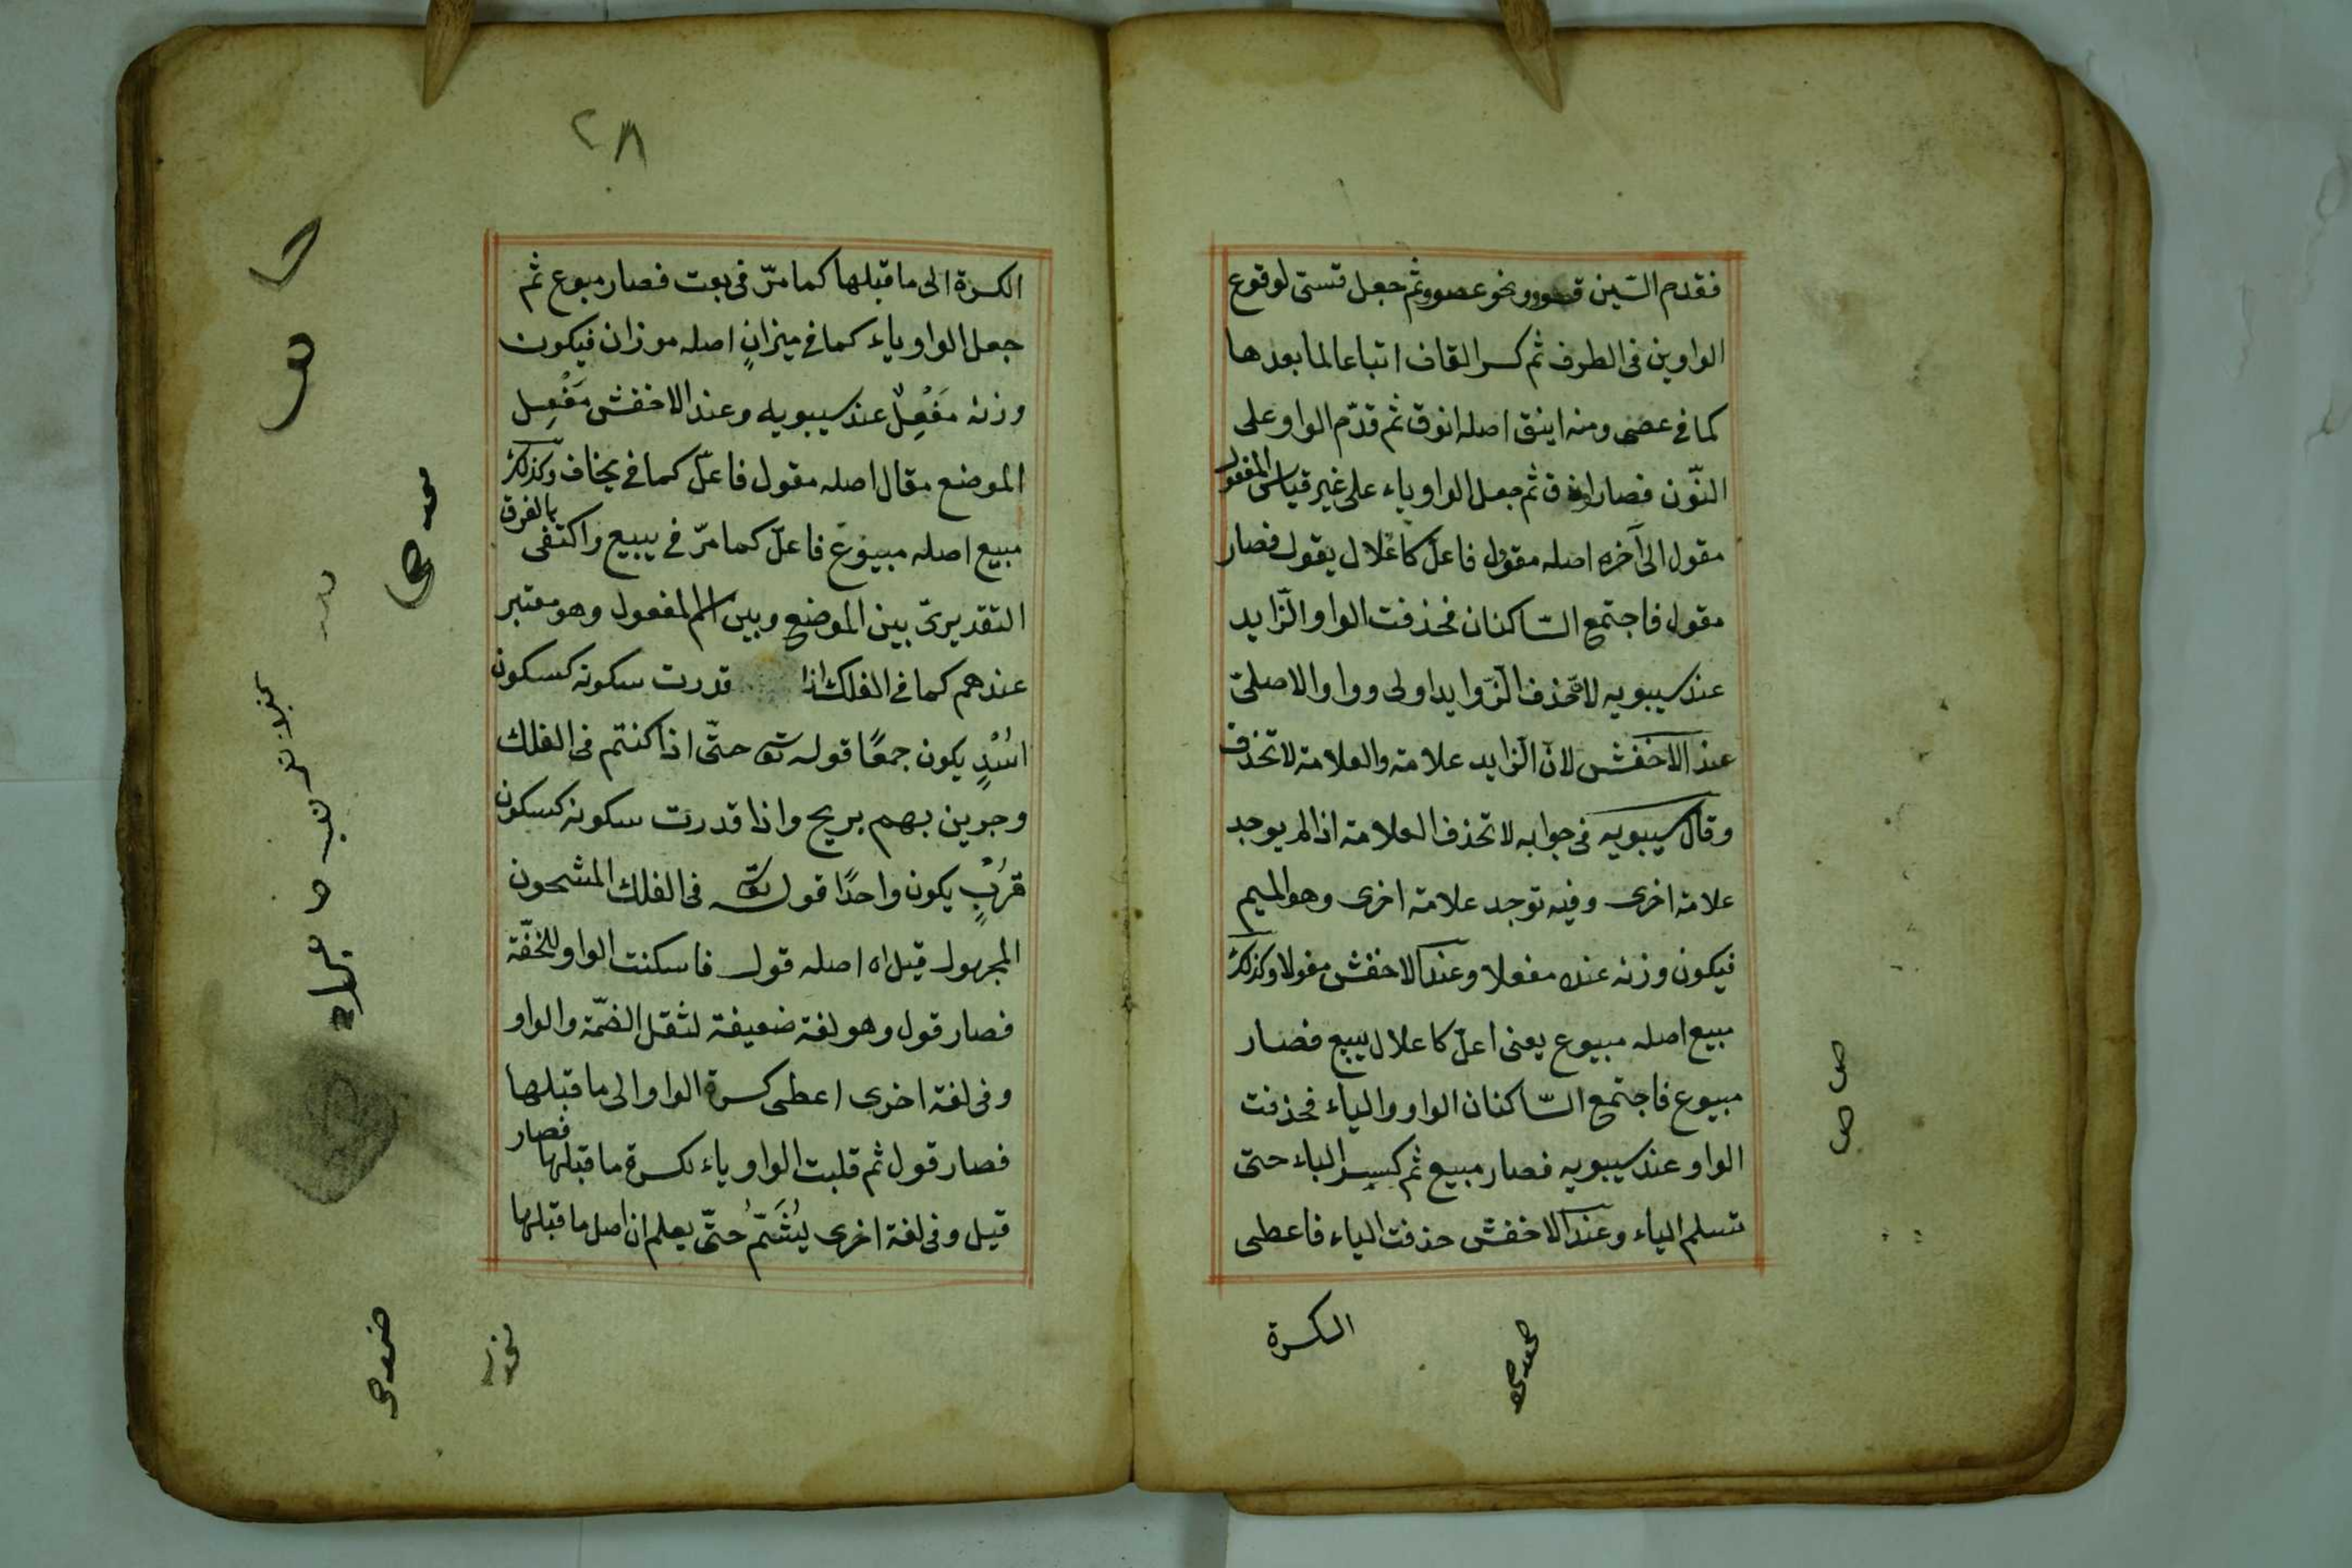 فقدم السّين قسوو ونحو عصوو ثم جعل قستى لوقوع
الواوين فى الطرف ثم كسر القاف اتباعا لما بعدها
كما فى عصى ومنه اينق اصله انوق ثم قدّم الواو على
النّون فصار اونق ثم جعل الواو ياء على غير قياس المفعول
مقول الى آخره اصله مقوول فاعلّ كاعلال يقول فصار
مقول فاجتمع السّاكنان فحذفت الواو الزّايد
عند سيبويه لانّ حذف الزّوايد اولى وواو الاصلىّ
عند الاخفش لانّ الزّايد علامة والعلامة لا تحذف
وقال سيبويه فى جوابه لا تحذف العلامة اذا لم يوجد
علامة اخرى وفيه توجد علامة اخرى وهو الميم
فيكون وزنه عنده مفعلا وعند الاخفش مفولا وكذلك
مبيع اصله مبيوع يعنى اعلّ كاعلال يبيع فصار
مبيوع فاجتمع السّاكنان الواو والياء فحذفت
الواو عند سيبويه فصار مبيع ثم كسر الباء حتى
تسلم الياء وعند الاخفش حذفت الياء فاعطى
الكسرة
٢٨
الكسرة الى ما قبلها كما مرّ فى بعت فصار مبوع ثم
جعل الواو ياء كما فى ميزانٍ اصله موزان فيكون
وزنه مَفْعِلٌ عند سيبويه وعند الاخفش مَفْعِل
الموضع مقال اصله مقول فاعلّ كما فى يخاف وكذلك
مبيع اصله مبيوع فاعلّ كما مرّ فى يبيع واكتفى بالفرق
التقديرىّ بين الموضع وبين اسم المفعول وهو معتبر
عندهم كما فى الفلك اذا قدرت سكونه كسكون
اُسْدٍ يكون جمعًا قوله تعا حتّى اذا كنتم فى الفلك
وجرين بهم بريح واذا قدرت سكونه كسكون
قُرْبٍ يكون واحدًا قوله تعا فى الفلك المشحون
المجهول قيل اه اصله قول فاسكنت الواو للخفّة
فصار قول وهو لغة ضعيفة لثقل الضمّة والواو
وفى لغة اخرى اعطى كسرة الواو الى ما قبلها
فصار قول ثم قلبت الواو ياء لكسرة ما قبلها فصار
قيل وفى لغة اخرى يُشَمّ حتّى يعلم ان اصل ما قبلها